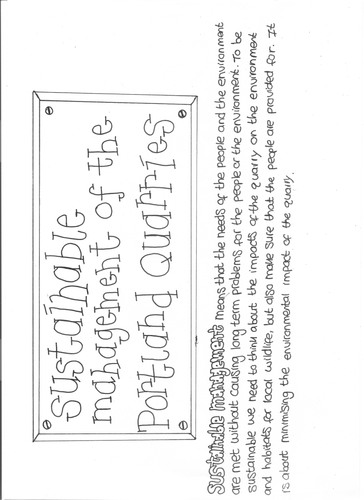 Sustainable
management of the
Portland Quarries
Sustainable management means that the needs of the people and the environment
are met without causing long term problems for the people or the environment. To be
sustainable we need to think about the impacts of the quarry on the environment
and habitats for local wildlife, but also make sure that the people are provided for. It
is about minimising the environmental impact of the quarry.